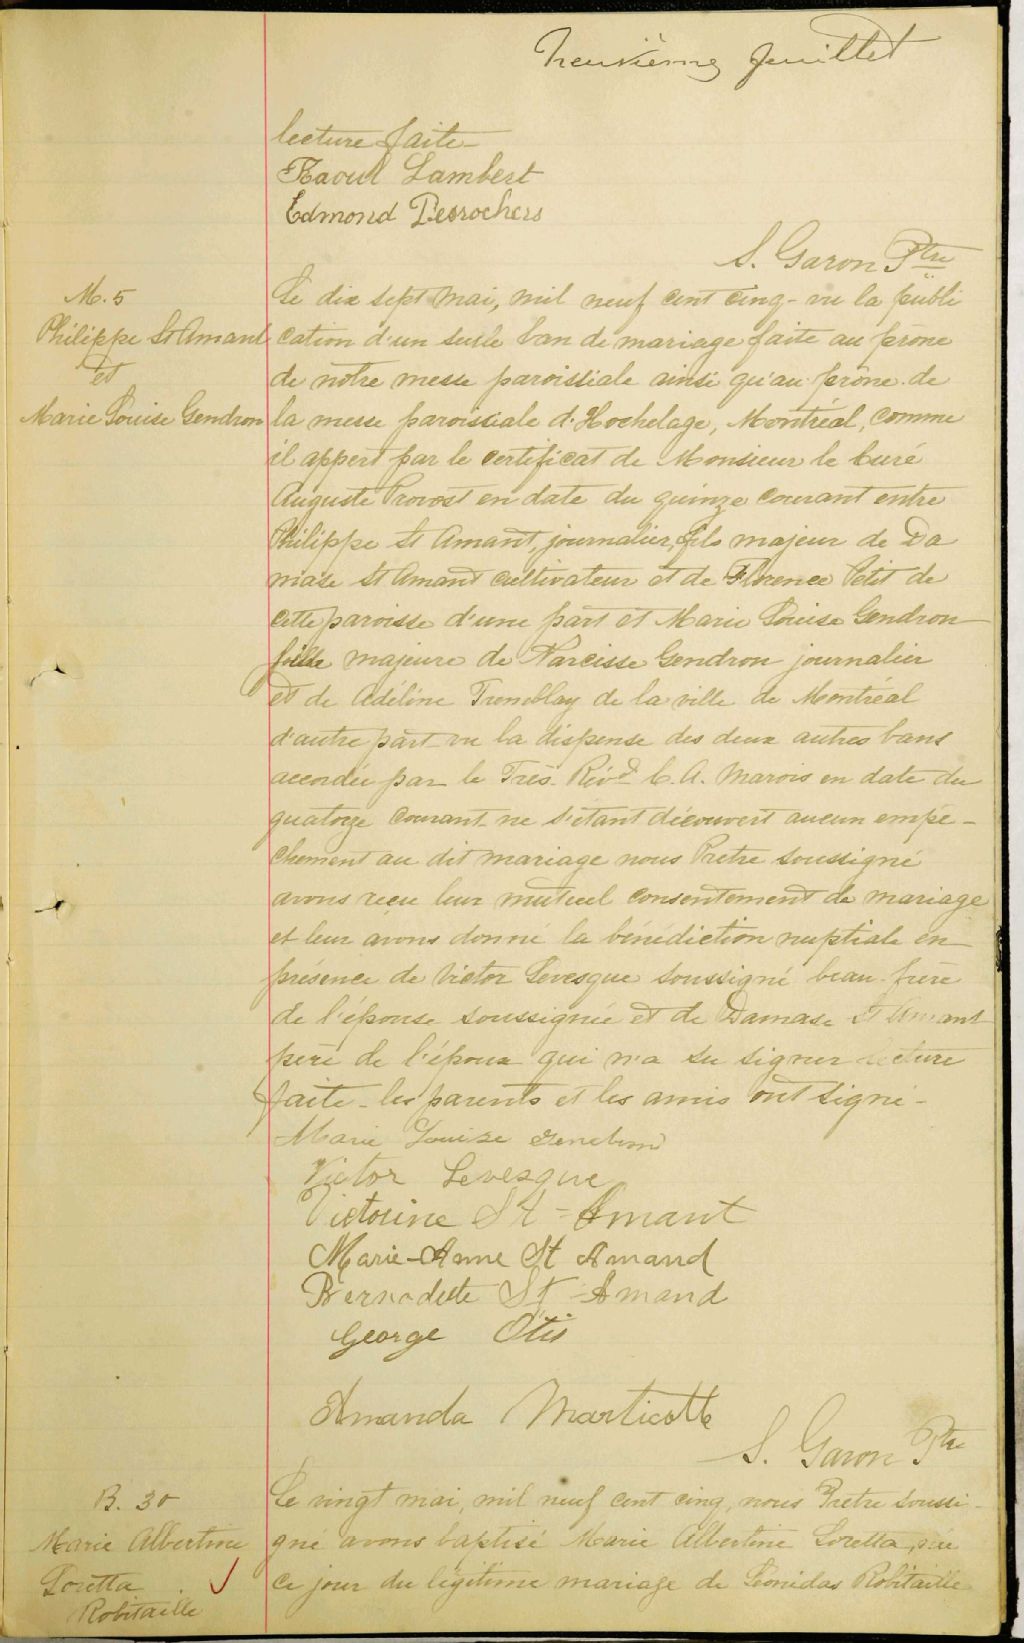 Neuvième feuillet
lecture faite-
Raoul Lambert
Edmond Desrochers
S. Garon Ptre
M. 5
Philippe St Amant
et
Marie Louise Gendron
Le dix sept mai, mil neuf cent cinq- vu la publi
cation d'un seule ban de mariage faite au prône
de notre messe paroissiale ainsi qu'au prône de
la messe paroissiale d'Hochelage, Montréal, comme
il appert par le certificat de Monsieur le Curé
Auguste Provost en date du quinze courant entre
Philippe St Amant, journalier, fils majeur de Da
mase St Amant cultivateur et de Florence Petit de
cette paroisse d'une part et Marie Louise Gendron
fille majeure de Narcisse Gendron journalier
et de Adéline Tremblay de la ville de Montréal
d'autre part vu la dispense des deux autres bans
accordée par le Très Révd C. A. Marois en date du
quatorze courant ne s'étant découvert aucun empê-
chement au dit mariage nous Prêtre soussigné
avons reçu leur mutuel consentement de mariage
et leur avons donné la bénédiction nuptiale en
présence de Victor Levesque soussigné beau-frère
de l'épouse soussignée et de Damase St Amant
père de l'époux qui n'a su signer lecture
faite- les parents et les amis ont signé-
Marie Louise Gendron
Victor Levesque
Victorine St-Amant
Marie-Anne St Amand
Bernadette St-Amand
George Otis
Amanda Marticotte
S. Garon Ptre
B. 30
Marie Albertine
Loretta
Robitaille
Le vingt mai, mil neuf cent cinq, nous Prêtre soussi-
gné avons baptisé Marie Albertine Loretta, née
ce jour du légitime mariage de Léonidas Robitaille